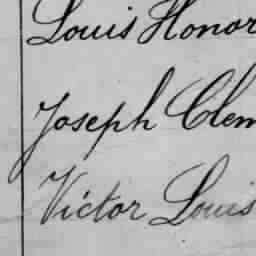 Louis Honor
Joseph Clem
Victor Louis